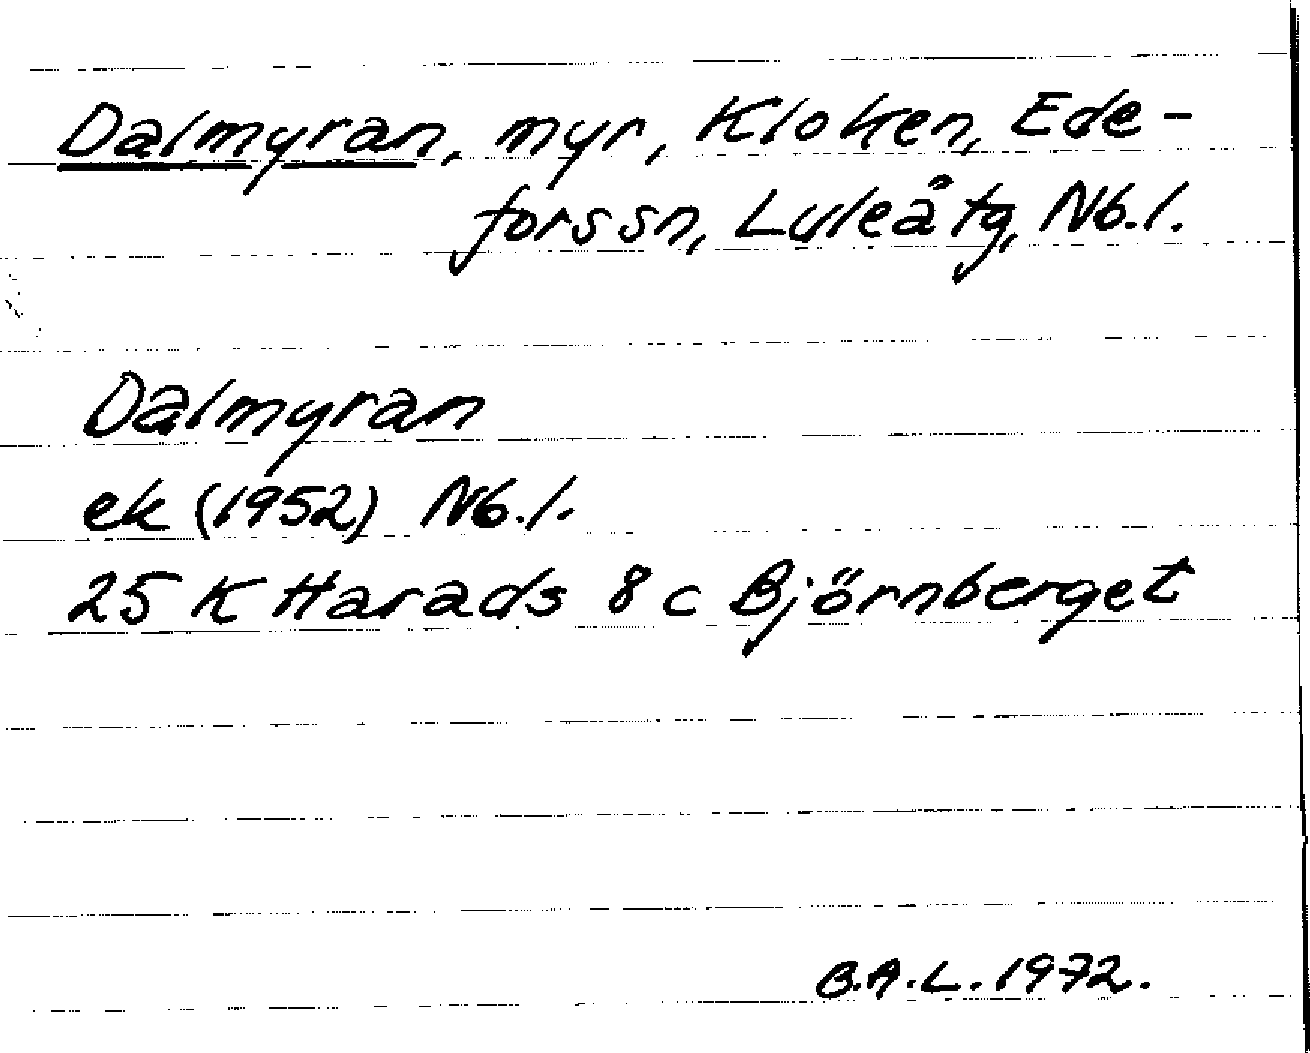 Dalmyran, myr, Kloken, Ede-
fors sn, Luleå tg, Nb.l.
Dalmyran
ek (1952) Nb.l.
25 K Harads 8 c Björnberget
B.A.L. 1972.